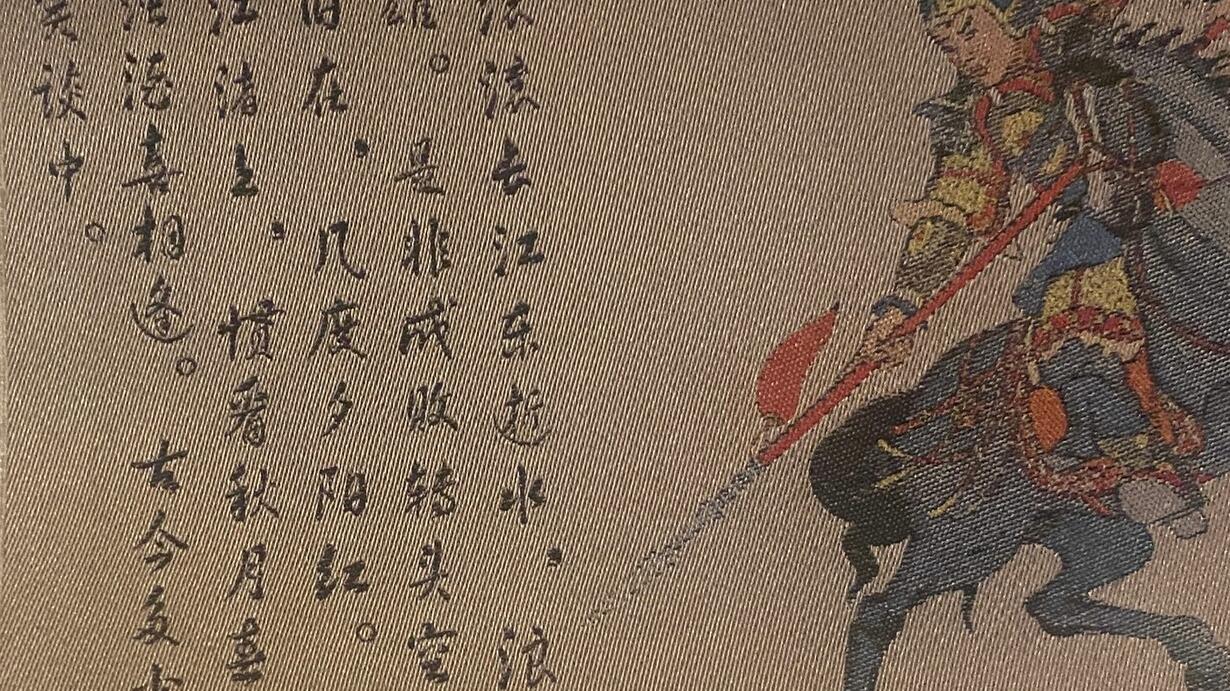 滚滚长江东逝水，浪
雄。是非成败转头空
旧在，几度夕阳红。
江渚上，惯看秋月春
浊酒喜相逢。古今多少
笑谈中。